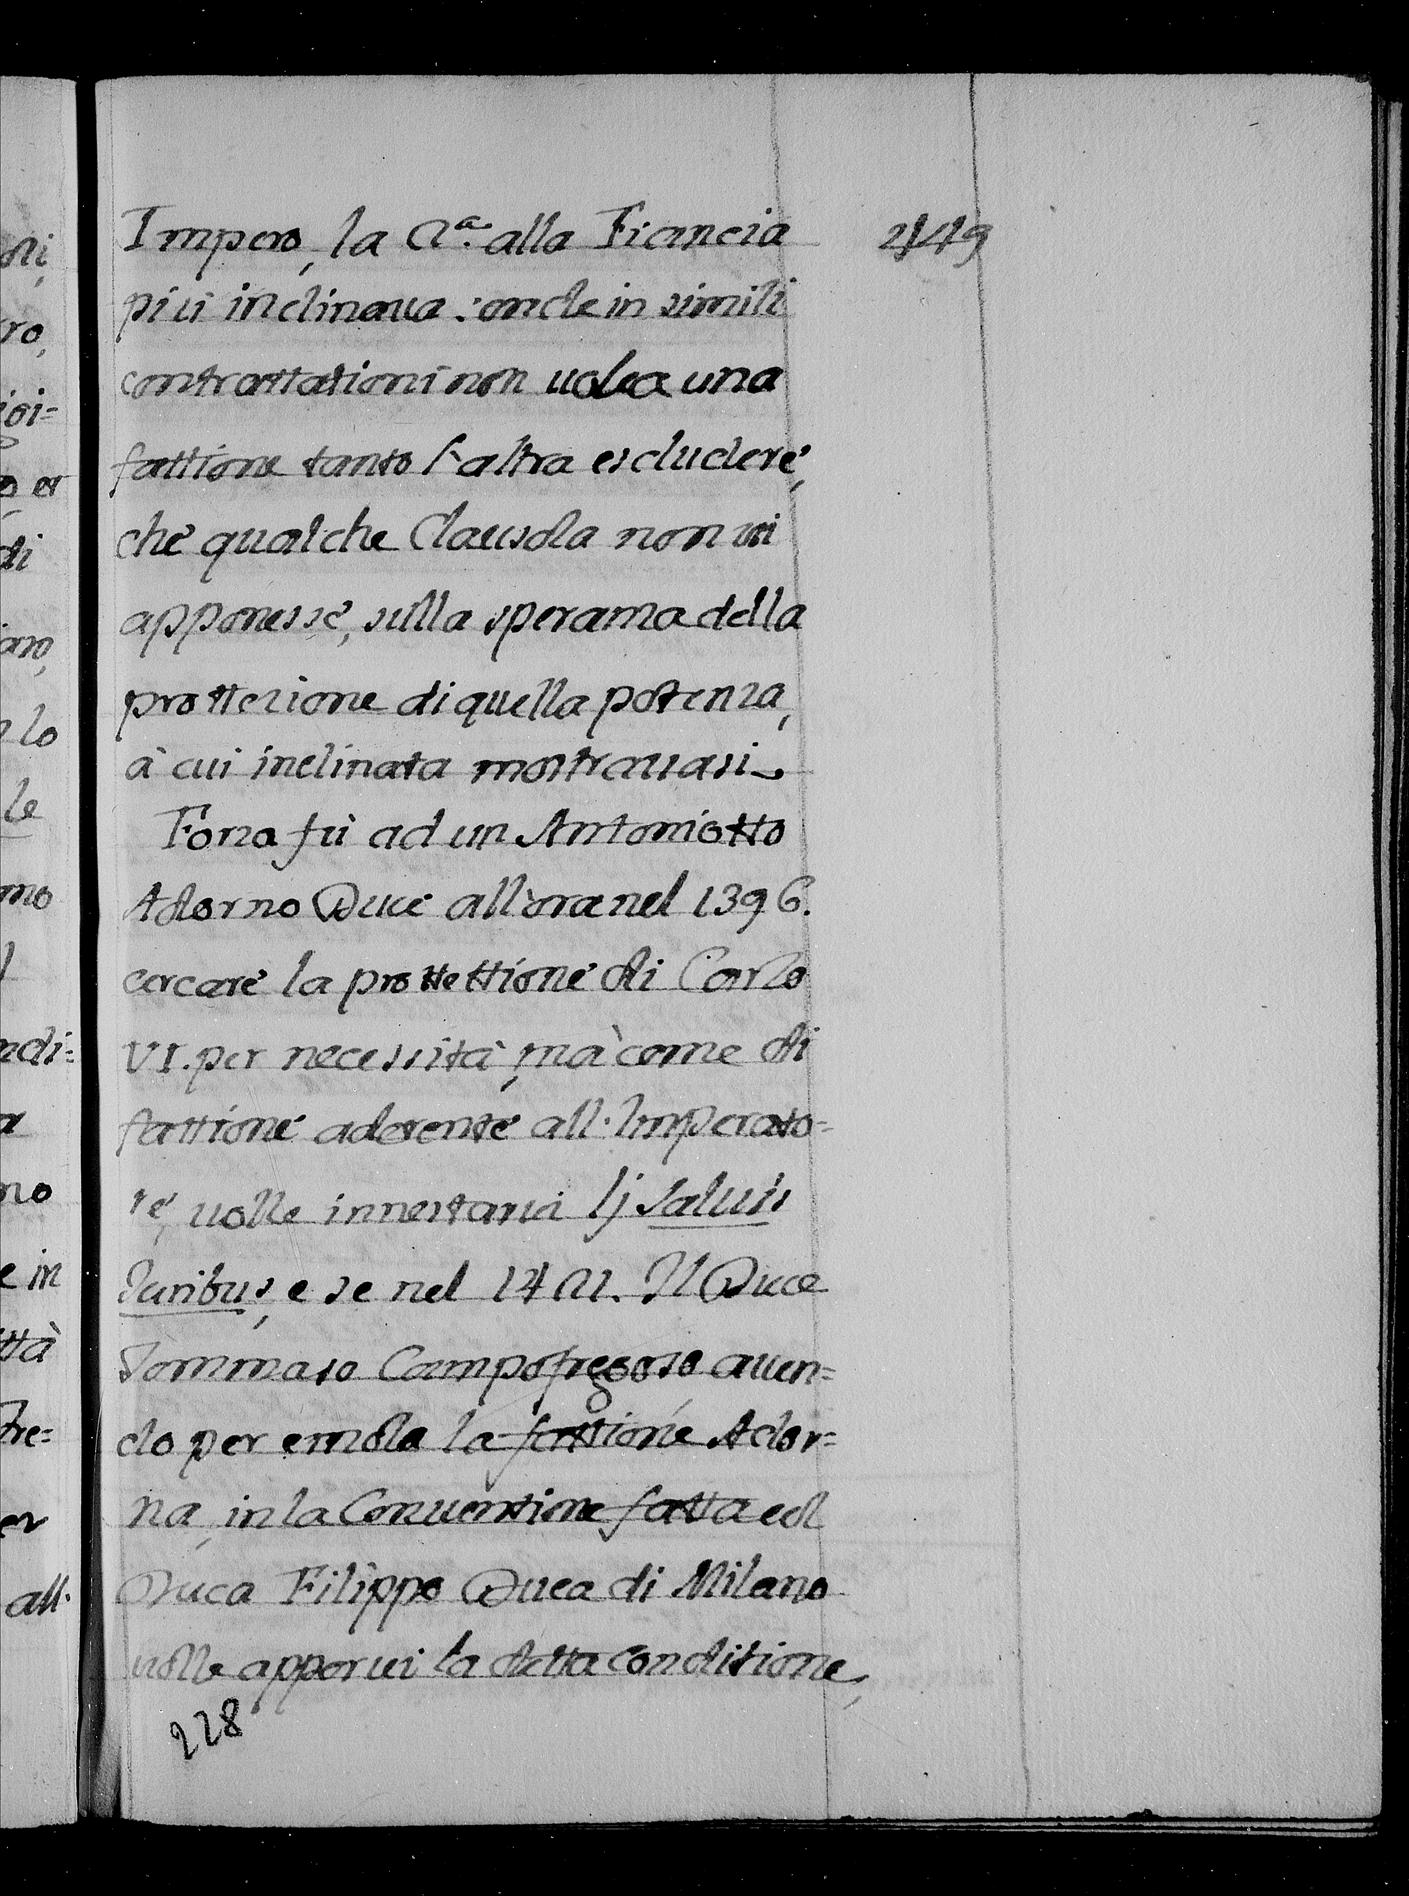 Impero, la 2.a alla Francia
449
più inclinaua: onde in simili
contrattationi non uolea una
fattione tanto l'altra escludere,
che qualche Clausola non ui
apponesse, sulla speranza della
prottezione di quella potenza,
à cui inclinata mostrauasi.
Forza fù ad un Antoniotto
Adorno Duce all'ora nel 1396.
cercare la prottettione di Carlo
VI. per necessità, mà come di
fattione aderente all'Imperato=
re, uolle innestarui lj saluis
Iuribus, e se nel 1421. Il Duce
Tommaso Campofregoso auen=
do per emola la fattione Ador=
na, in la Conuentione fatta col
Duca Filippo Duca di Milano
uolle apporui la detta conditione,
228